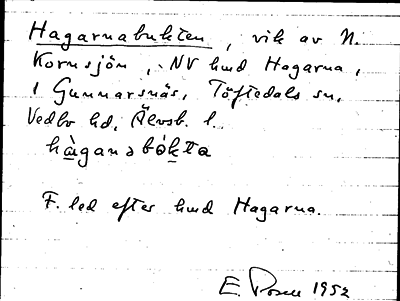 Hagarnabukten, vik av N.
Kornsjön, NV hmd Hagarna,
1 Gunnarsnäs, Töftedals sn,
Vedbo hd, Älvsb. l.
hàganabókta
F. led efter hmd Hagarna.
E. Rosell 1952